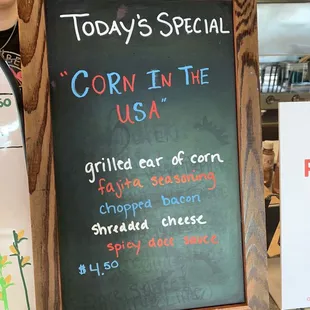 Today's Special
"Corn In The
USA"
grilled ear of corn
fajita seasoning
chopped bacon
shredded cheese
spicy docc sauce
$4.50